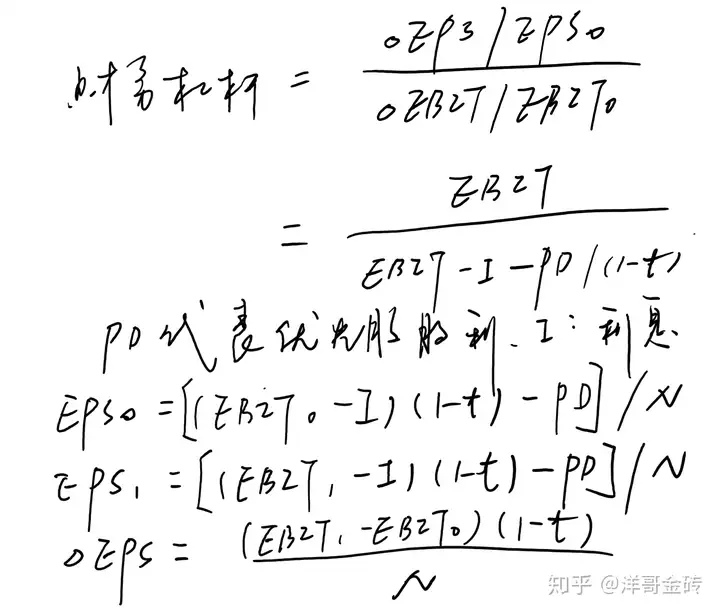 财务杠杆 = ΔEPS/EPS₀ / ΔEBIT/EBIT₀
= EBIT / EBIT - I - PD/(1-t)
PD代表优先股股利. I: 利息.
EPS₀ = [(EBIT₀ - I)(1-t) - PD]/N
EPS₁ = [(EBIT₁ - I)(1-t) - PD]/N
ΔEPS = (EBIT₁ - EBIT₀)(1-t) / N
知乎 @洋哥金砖